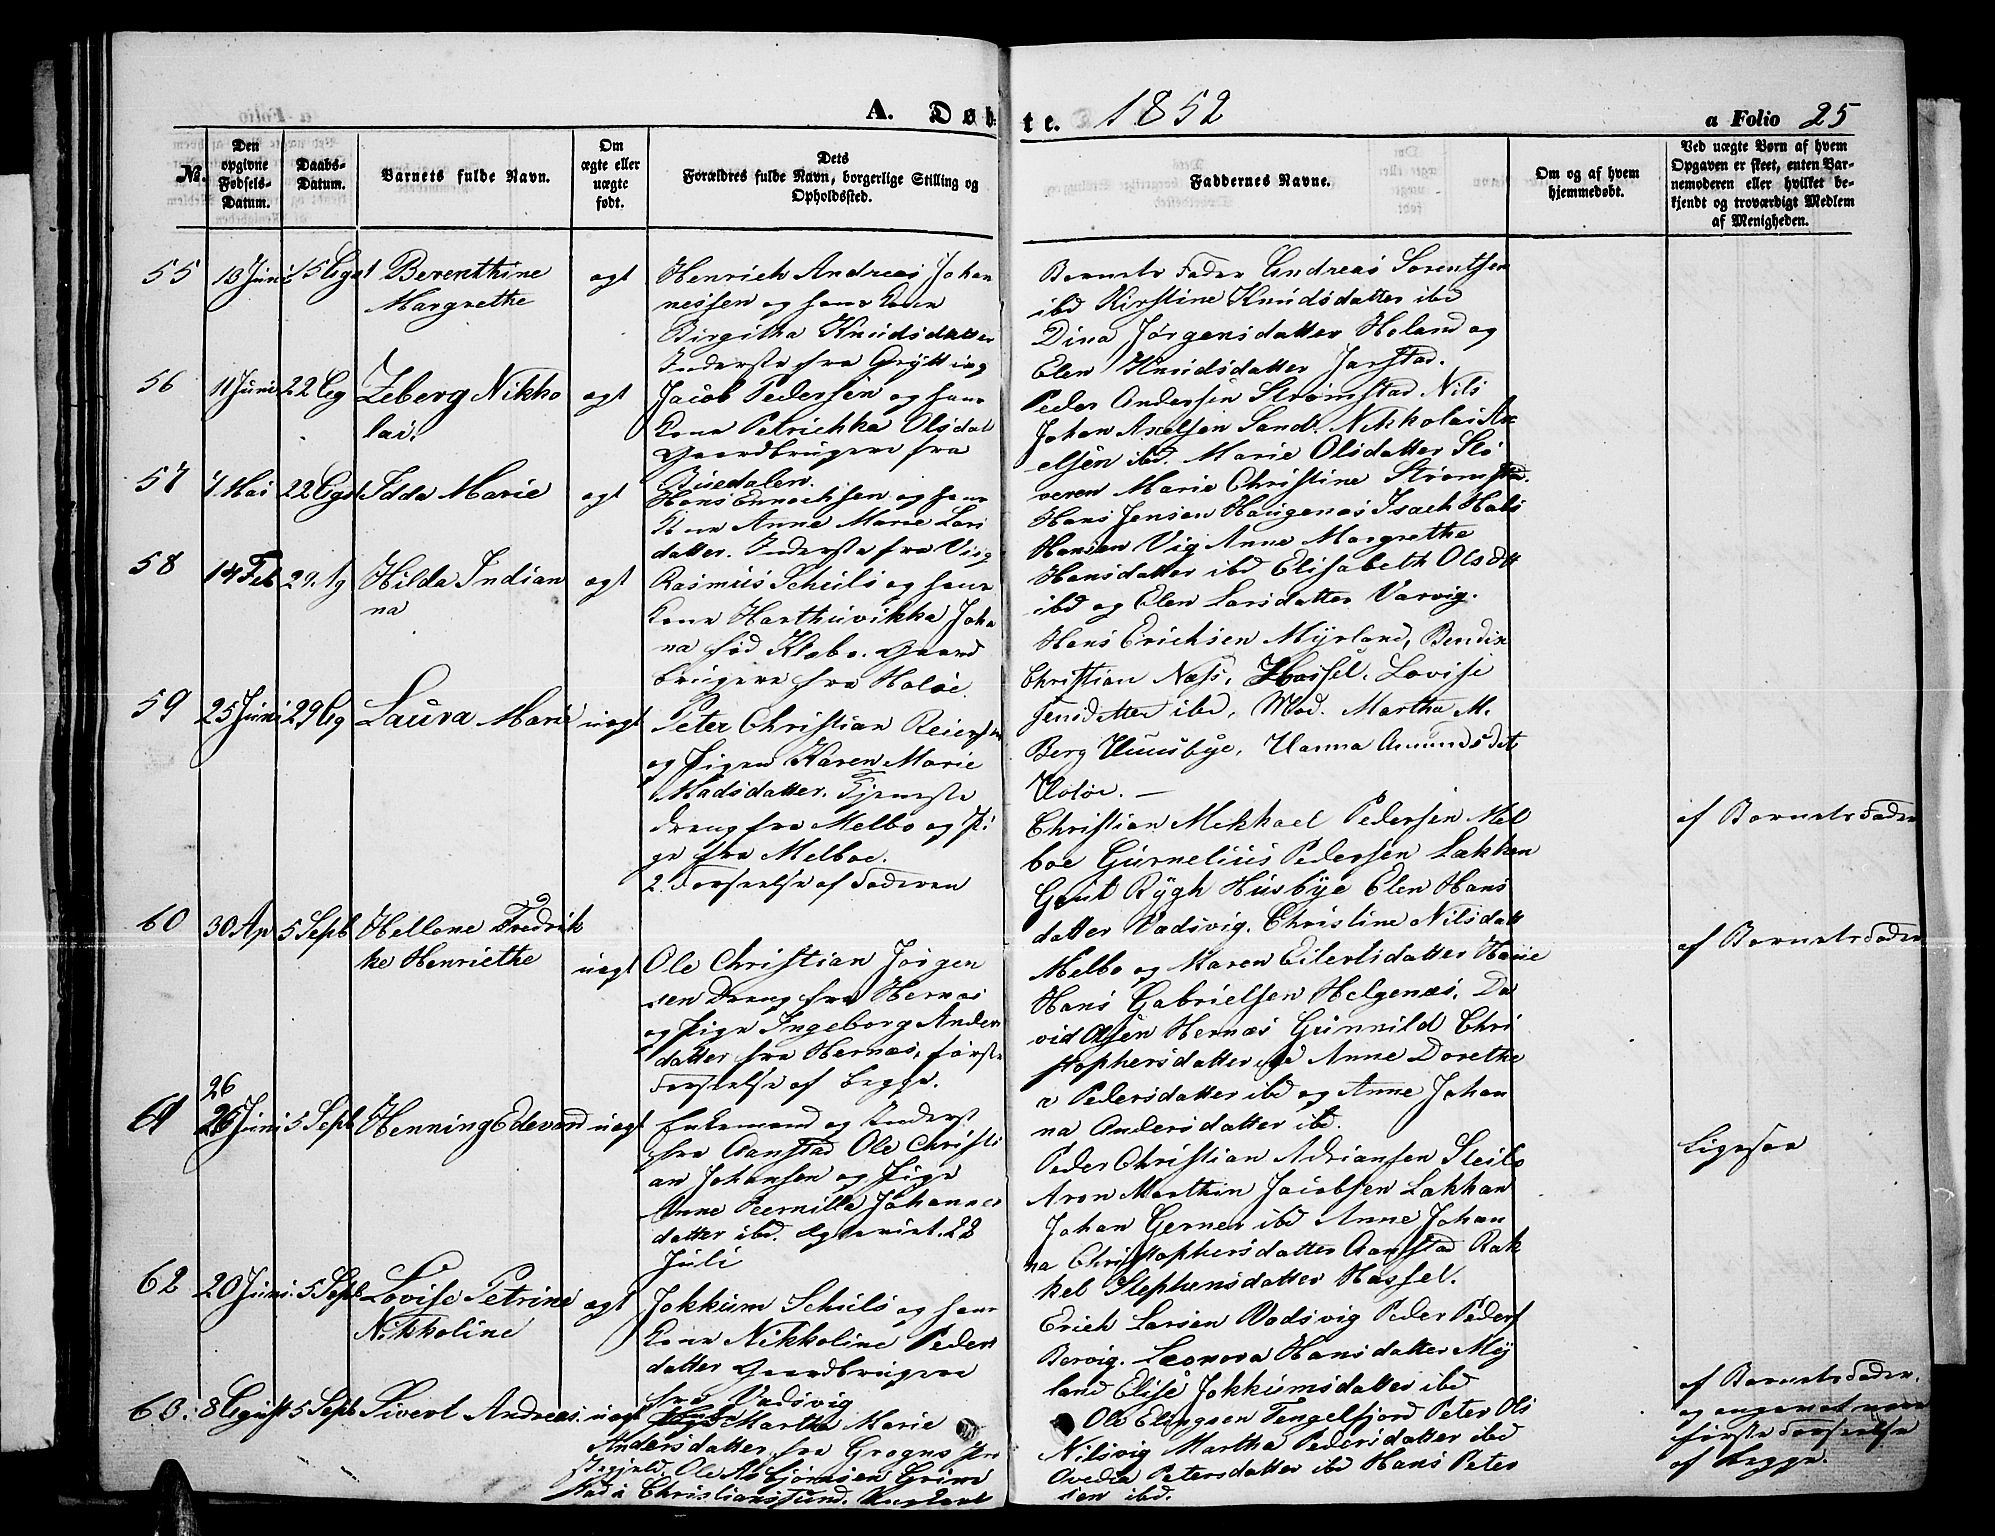 A. Døbte. 1852
a Folio 25
No.
Den opgivne Fødsels-Datum.
Daabs-Datum.
Barnets fulde Navn.
Om ægte eller uægte født.
Dets Forældres fulde Navn, borgerlige Stilling og Opholdssted.
Faddernes Navne.
Om og af hvem hjemmedøbt.
Ved uægte Børn af hvem Opgaven er skeet, enten Barnemoderen eller hvilket bekjendt og troværdigt Medlem af Menigheden.
55 13 Juni 15 Aug Berenthine
Margrethe
ægt
Henrich Andreas Johan
nessen og hans Kone
Birgitha Knudsdatter
Inderste fra Grytting
Barnets Fader Andreas Sorentsen
ibd Kirstine Knudsdatter ibd
Dina Jørgensdatter Holand og
Elen Knudsdatter Jarstad.
56 11 Juni 22 Aug Zeberg Nikko
lai.
ægt
Jacob Pedersen og hans
Kone Petrichka Olsdat
Gaardbrugere fra
Buedalen.
Peder Andersen Strømstad Nils
Johan Axelsen Sand. Nikkolai Ax
elsen ibd. Marie Olsdatter Slø
veren Marie Christine Strømstad.
57 7 Mai 22 Aug Idda Marie
ægt
Hans Ennochsen og hans
Kone Anne Marie Lars
datter. Inderste fra Vig
Hans Jensen Haugenæs Isach Hals
Hansen Vig Anne Margrethe
Hansdatter ibd Elisabeth Olsdtt
ibd og Elen Larsdatter Varvig.
58 14 Feb 29 Ag Hilda Indian
na
ægt
Rasmus Schuls og hans
Kone Harthuvikka Joha
na fød Klæbo. Gaard
brugere fra Holøe.
Hans Erichsen Myrland, Bendix
Christian Næss, Hassel. Lovise
Jensdatter ibd, Mad. Martha M.
Berg Huusbye, Hanna Amundsdat
Holøe. —
59 25 Juni 29 Ag Laura Marie
uægt
Peter Christian Reiersen
og Pigen Karen Marie
Madsdatter. Tjeneste
dreng fra Melbo og Pi
ge fra Melboe.
2. Forseelse af Faderen
Christian Mekkael Pedersen Mel
boe Gurnelius Pedersen Lakken
Gaut Rygh Husbye Elen Hans
datter Vadsvig. Christine Nilsdatt
Melbo og Maren Eilertsdatter
af Barnets Fader
60 30 Ap 5 Septb Hellene Fredrik
ke Henriethe
uægt
Ole Christian Jørgen
sen Dreng fra Hernæs
og Pige Ingeborg Anders
datter fra Hernæs, første
Forseelse af begge.
Hans Gabrielsen Helgenæs, Da
vid Olsen Hernæs Gunnild Chri
stophersdatter ibd Anne Dorethe
a Pedersdatter ibd og Anne Johan
na Andersdatter ibd.
af Barnets Fader
61 26
26 Juni 5 Septb Henning Edevard
uægt
Enkemand og Inderst
fra Aanstad Ole Christi
an Johansen og Pige
Anne Pernilla Johannes
datter ibd. 22
Juli
Peder Christian Adriansen Steils
Aron Marthin Jacobsen Lakkan
Johan Gerner ibd Anne Johan
na Christophersdatter Aanstad Rak
kel Stephensdatter Hassel.
Ligesaa
62 20 Juni 5 Septb Lovise Petrine
Nikkoline
ægt
Jokkum Schuls og hans
Kone Nikkoline Peders
datter Gaardbrugere
fra Vadsvig
Erich Larsen Vadsvig Peder Peders
Borvig. Leonora Hansdatter My
land Elise Jokkumsdatter ibd
63. 8 August 5 Septb Sivert Andreas
uægt
Martha Marie
Andersdatter fra Grognæs Præ
stegjeld. Ole Asbjørnsen Grim
stad i Christianssund.
Ole Elingsen Tengelfjord Peter Ols
Nilsvig Martha Pedersdatter ibd
Ovedia Petersdatter ibd Hans Peter
sen ibd.
af Barnets Fader.
og angivet være
første Forseelse
af begge.